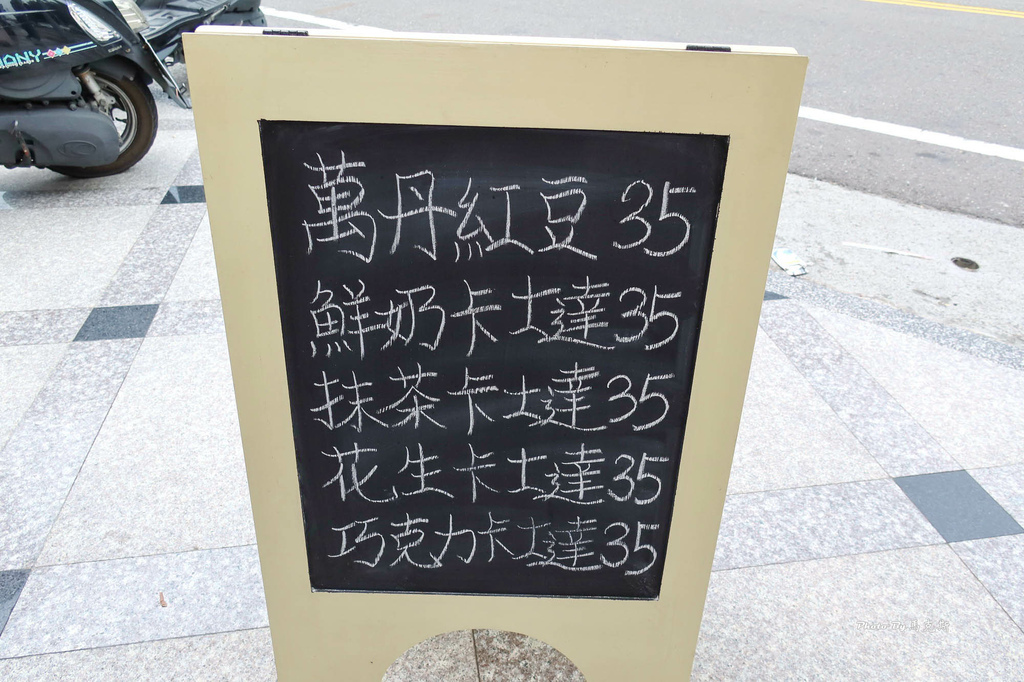 萬丹紅豆 35
鮮奶卡士達 35
抹茶卡士達 35
花生卡士達 35
巧克力卡士達 35